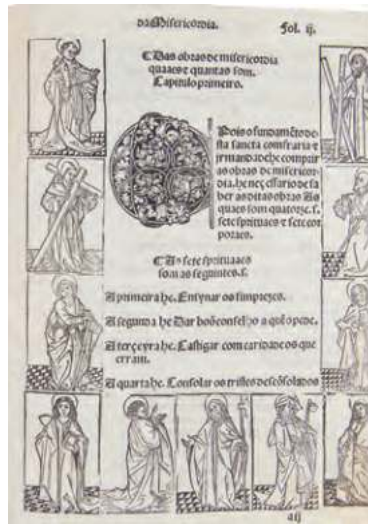 da Misericordia.
Fol. ij.
¶ Das obras de misericordia
quaaes ⁊ quantas som.
Capitulo primeiro.
Pois o fundamẽto de
sta sancta comfraria ⁊
jrmandade he comprir
as obras de misericor
dia. he neçessario de sa
ber as ditas obras As
quaes som quatorze. s.
sete sprituaes ⁊ sete cor
poraes.
¶ As sete sprituaaes
som as seguintes. s.
A primeira he. Ensynar os simprezes.
A segunda he Dar boõ conselho a quẽ o pede.
A terçeyra he. Castigar com caridade os que
erram.
A quarta he. Consolar os tristes descõsolados
aij